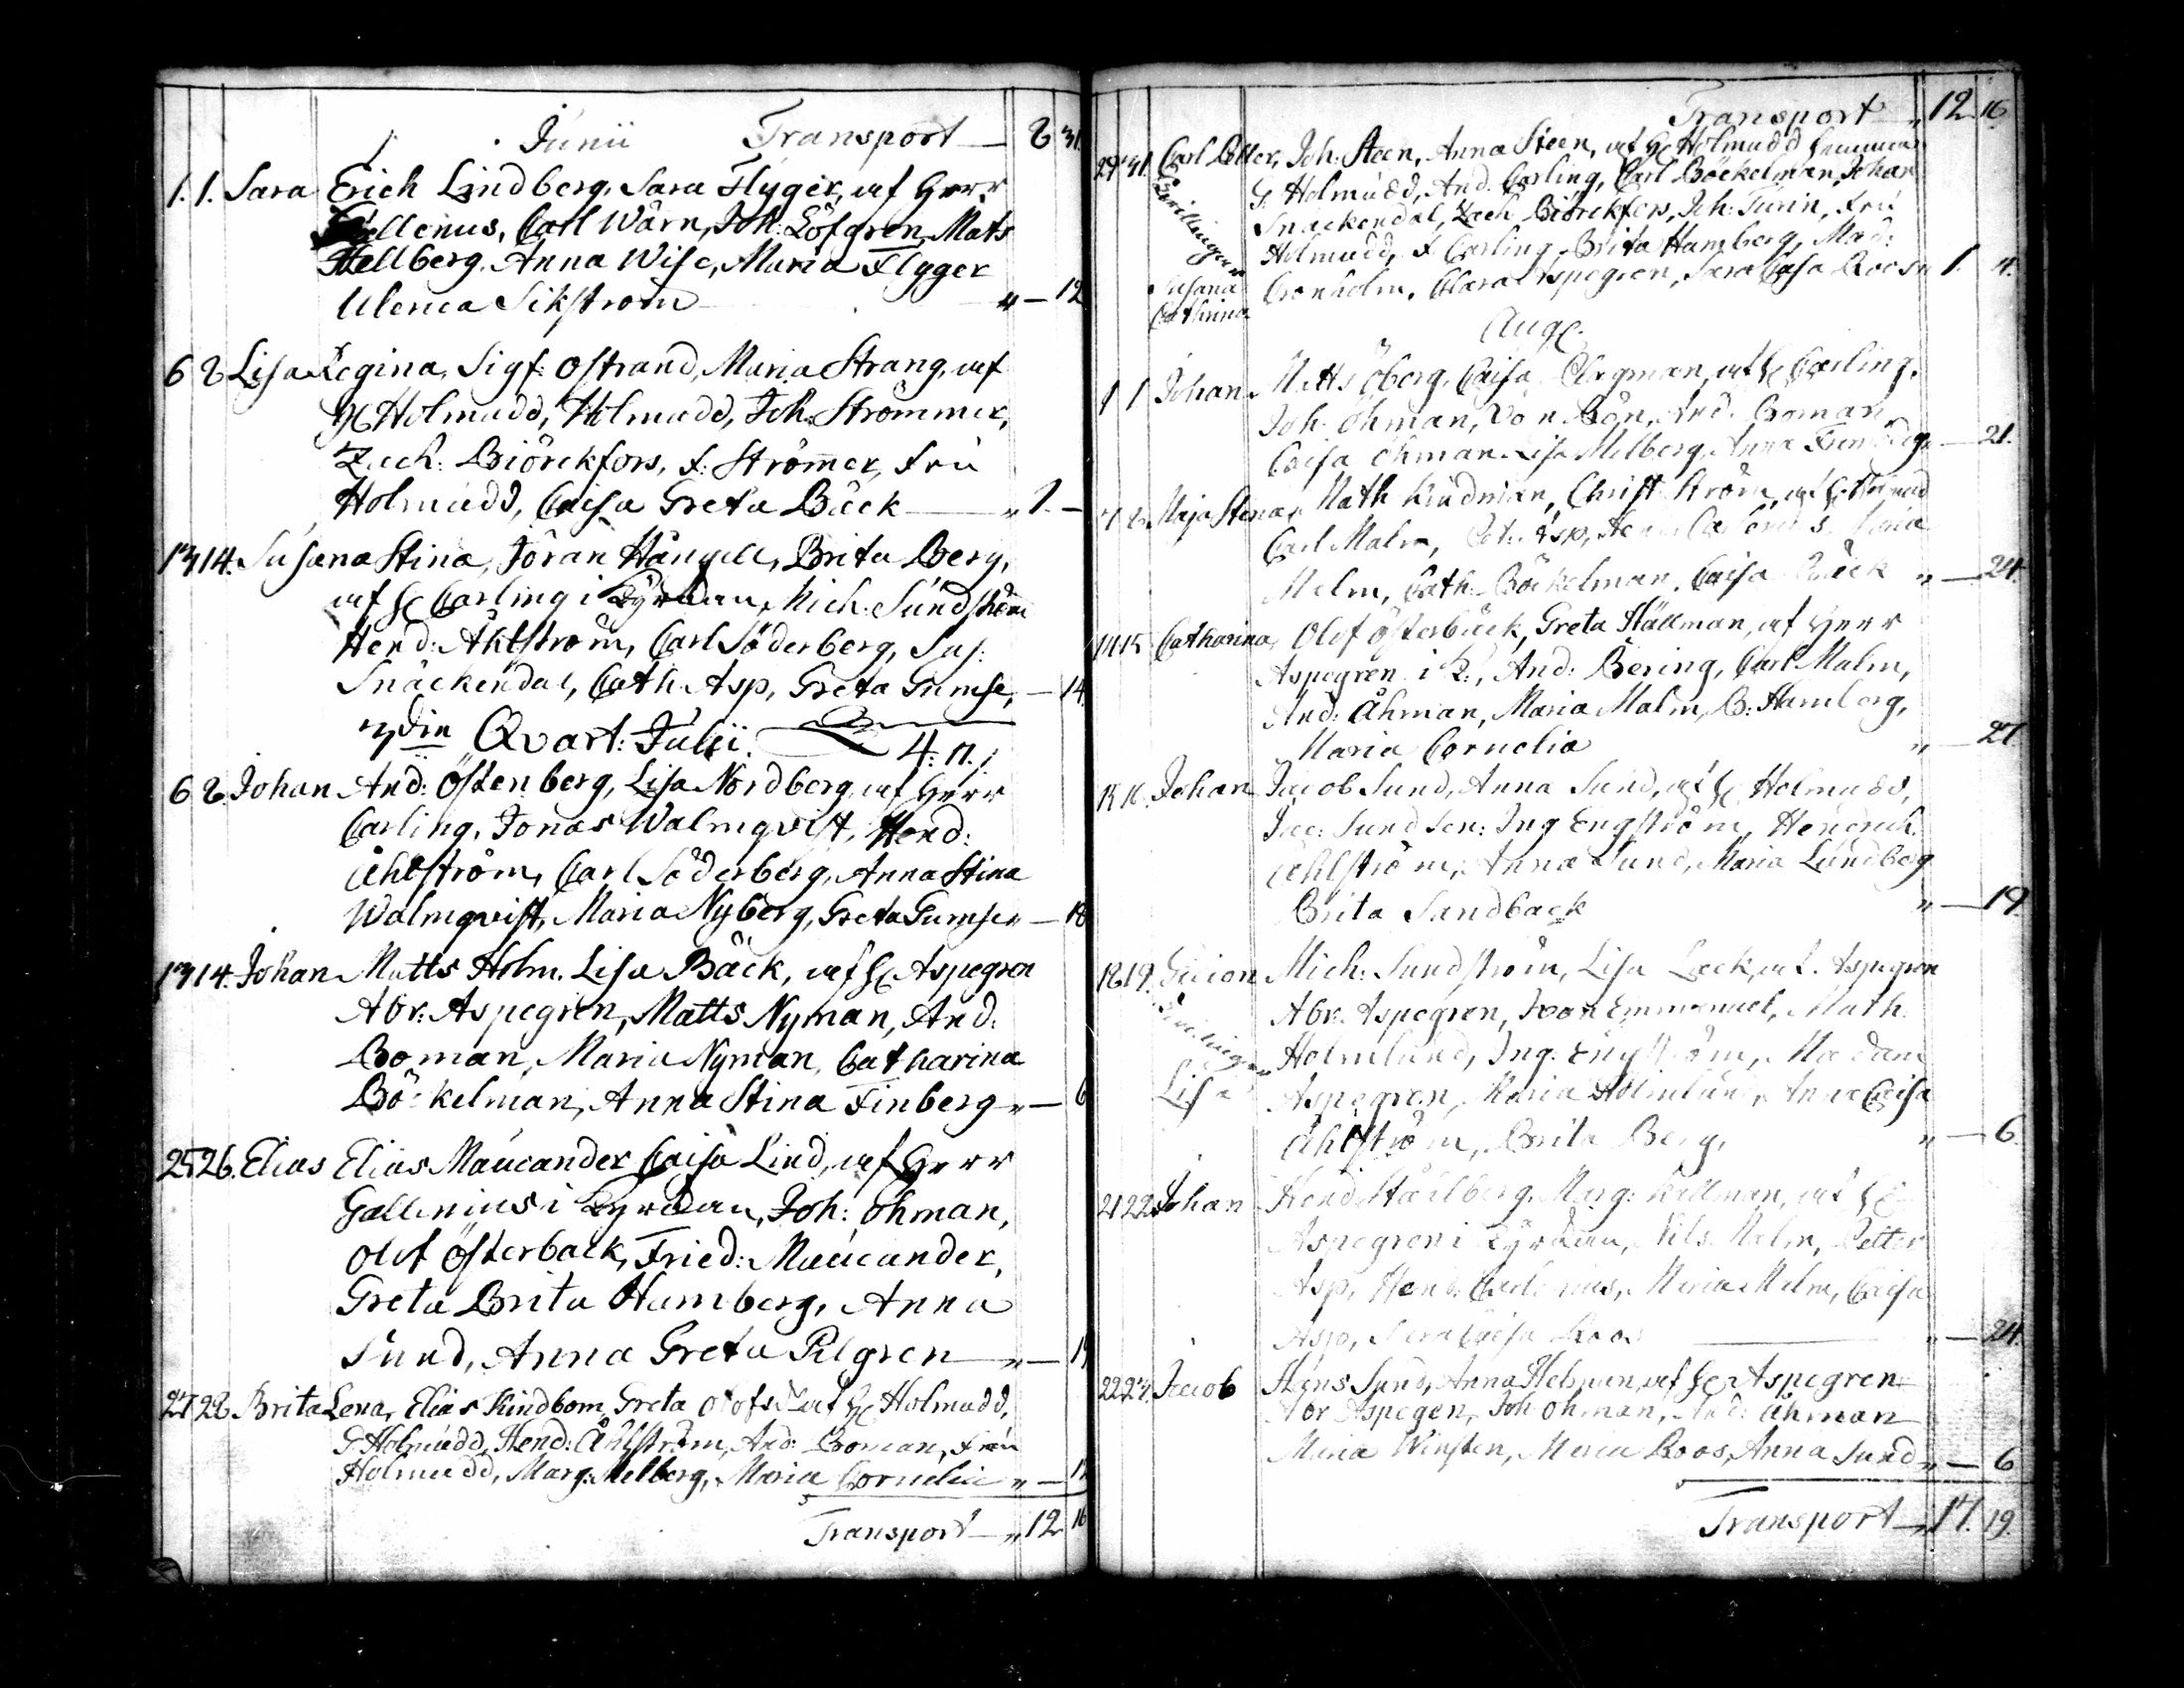 Junii Transport — 8 31.
1. 1. Sara Erich Lindberg, Sara Flyger, af Herr
Gallenius, Carl Wärn, Joh: Löfgren, Mats
Hellberg, Anna Wise, Maria Flyger
Ulerica Sikström „ — 12
6 8 Lisa Regina, Sigf: Östrand, Maria Strang, af
H Holmudd, Holmudd, Joh: Strömmer,
Zach: Biörckfors, f: Strömer, Fru
Holmudd, Caisa Greta Bäck — „ 1. —
13 14. Susana Stina, Jöran Hängell, Brita Berg,
af H Carling i Kyrckan, Mich: Sundström
Hend: Åhlström, Carl Söderberg, Sus:
Snäckendal, Cath: Asp, Greta Gumse, — 14.
3din Qvart: Julii. 4. n.
6 8. Johan And: Östenberg, Lisa Nordberg, af Herr
Carling, Jonas Walmqvist, Hend:
Åhlström, Carl Söderberg, Anna Stina
Walmqvist, Maria Nyberg, Greta Gumse „ — 18
13 14. Johan Matts Holm, Lisa Bäck, af H Aspegren
Abr: Aspegren, Matts Nyman, And:
Boman, Maria Nyman, Catharina
Böckelman, Anna Stina Finberg „ — 6
25 26. Elias Elias Maucander Caisa Lind, af Herr
Gallenius i Kyrckan, Joh: Öhman,
Olof Österback, Fried: Maucander,
Greta Brita Hamberg, Anna
Sund, Anna Greta Pilgren „ — 19
27 28 Brita Lena, Elias Kindbom, Greta Olofs af H Holmudd,
G Holmudd, Hend: Åhlström, And: Boman, Fru
Holmudd, Marg: Melberg, Maria Cornelia „ — 12
Transport — „ 12 16

Transport „ 12 16
29 31. Carl Petter, Joh: Steen, Anna Steen, af H Holmudd hemma
Tvillingar G: Holmudd, And: Carling, Carl Böckelman, Johan
Snäckendal, Zach Biörckfors, Joh: Turin, Fru
Holmudd, f Carling, Brita Hamberg, Mad:
Susana Cathrina Cronholm, Clara Aspegren, Sara Caisa Roos „ 1. 4.
Aug.
1 1. Johan Matts Öberg, Caisa Clagman, af H Carling,
Joh: Öhman, And: Boman
Caisa Öhman Lisa Melberg, Anna — 21.
7 8. Maja Stena, Math Kindman, Christ: Ström, af H Holmudd
Carl Malm, Asp,
Malm, Cath: Böckelman, Caisa Bäck „ — 24.
14 15 Catharina, Olof Österbäck, Greta Hällman, af Herr
Aspegren i K:, And: Bering, Carl Malm,
And: Åhman, Maria Malm, B: Hamberg,
Maria Cornelia „ — 27.
15 16. Johan Jacob Sund, Anna Sund, af H Holmudd,
Jac: Sund Sen: Ing Engström, Hendrich
Åhlström, Anna Sund, Maria Lundberg
Brita Sandback „ — 19.
18 19. Gideon Mich: Sundström, Lisa Lack, af. Aspegren
Tvillingar Abr: Aspegren, Ivar Emmanuel, Math:
Holmlund, Ing: Engström, Madam
Lisa Aspegren, Maria Holmlund, Anna Caisa
Åhlström, Brita Berg, „ — 6.
21 22. Johan Hend: Stählberg, Marg: Kallman, af H
Aspegren i Kyrckan, Nils Malm, Petter
Asp, Hend: Maria Malm, Caisa
Asp, Sara Caisa Roos „ — 24.
22 23. Jacob Hans Sund, Anna Helsman, af H Aspegren
Abr Aspegen, Joh Öhman, And: Åhman
Maria Winsten, Maria Roos, Anna Sund „ — 6
Transport — „ 17. 19.